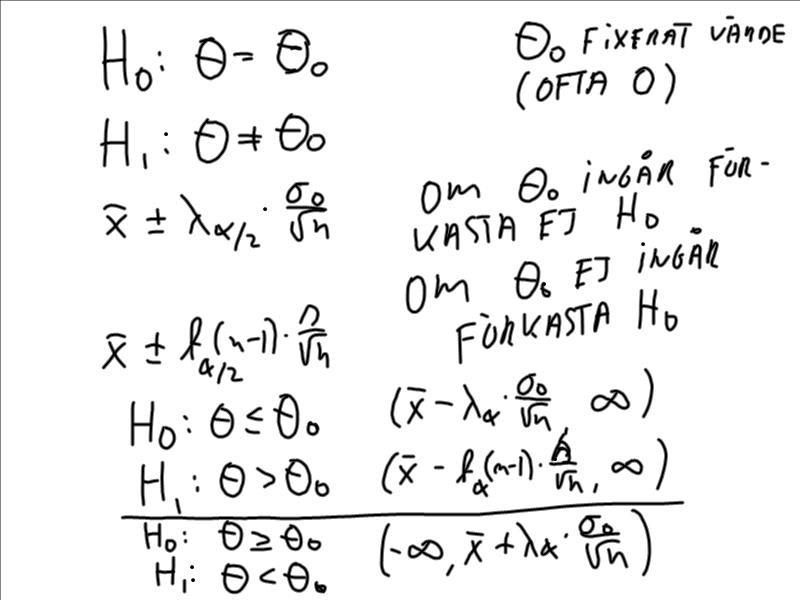 H₀: θ = θ₀
θ₀ FIXERAT VÄRDE
(OFTA 0)
H₁: θ ≠ θ₀
x̄ ± λ_{α/2} · σ₀/√n
OM θ₀ INGÅR FÖR-
KASTA EJ H₀
OM θ₀ EJ INGÅR
FÖRKASTA H₀
x̄ ± t_{α/2}(n-1) · s/√n
H₀: θ ≤ θ₀
(x̄ - λ_α · σ₀/√n ∞)
H₁: θ > θ₀
(x̄ - t_α(n-1) · s/√n, ∞)
H₀: θ ≥ θ₀
H₁: θ < θ₀
(-∞, x̄ + λ_α · σ₀/√n)